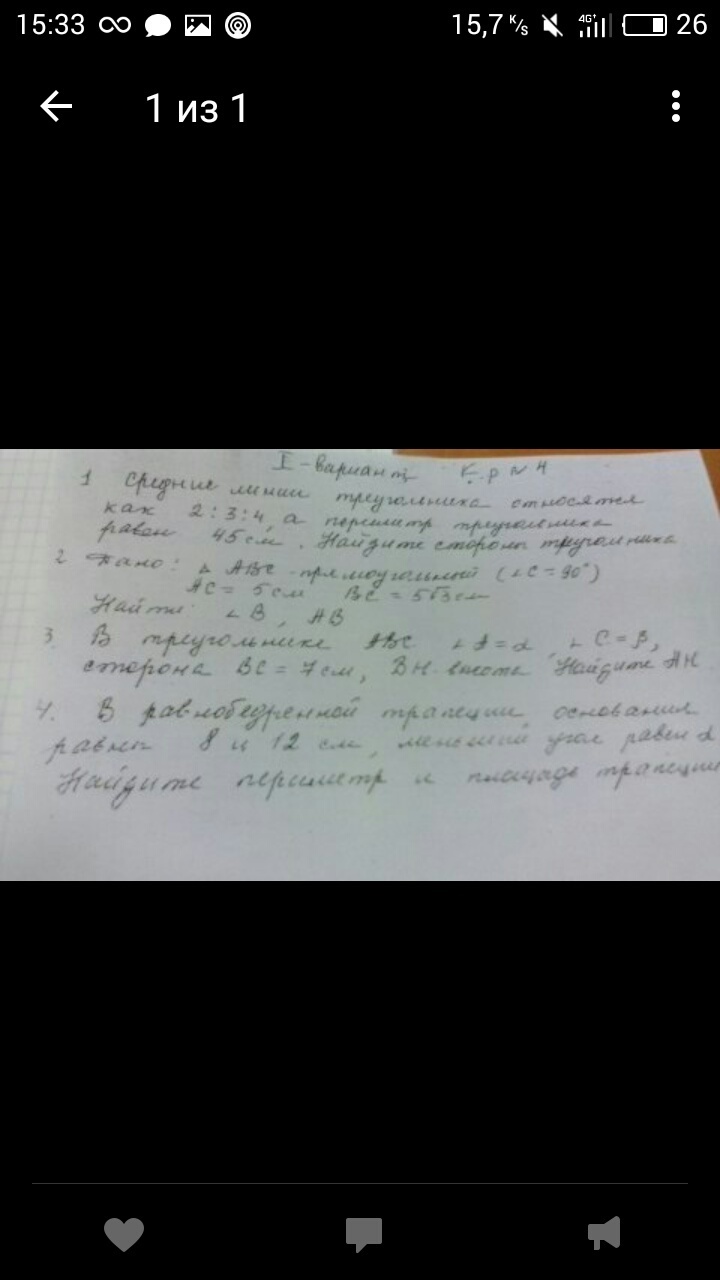 15:33
15,7 K/s 4G+ 26
1 из 1
I - вариант К.р № 4
1 Средние линии треугольника относятся
как 2:3:4, а периметр треугольника
равен 45 см. Найдите стороны треугольника
2 Дано: △ ABC - прямоугольный (∠C = 90°)
AC = 5 см BC = 5√3 см
Найти ∠B, AB
3. В треугольнике ABC ∠A = α, ∠C = β,
сторона BC = 7 см, BH - высота Найдите AH
4. В равнобедренной трапеции основания
равны 8 и 12 см, меньший угол равен α
Найдите периметр и площадь трапеции